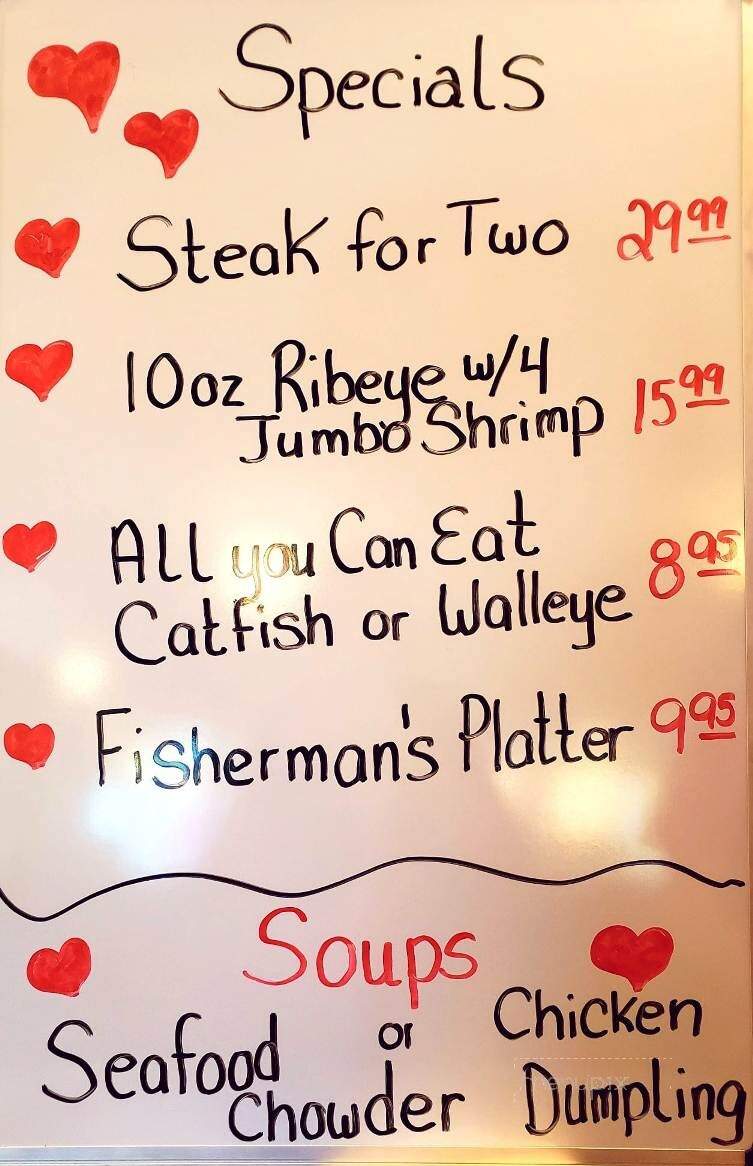 Specials
Steak for Two 29 99
10oz Ribeye w/4
Jumbo Shrimp 15 99
All you Can Eat
Catfish or Walleye 8 95
Fisherman's Platter 9 95
Soups
Seafood Chowder or Chicken Dumpling
menupix